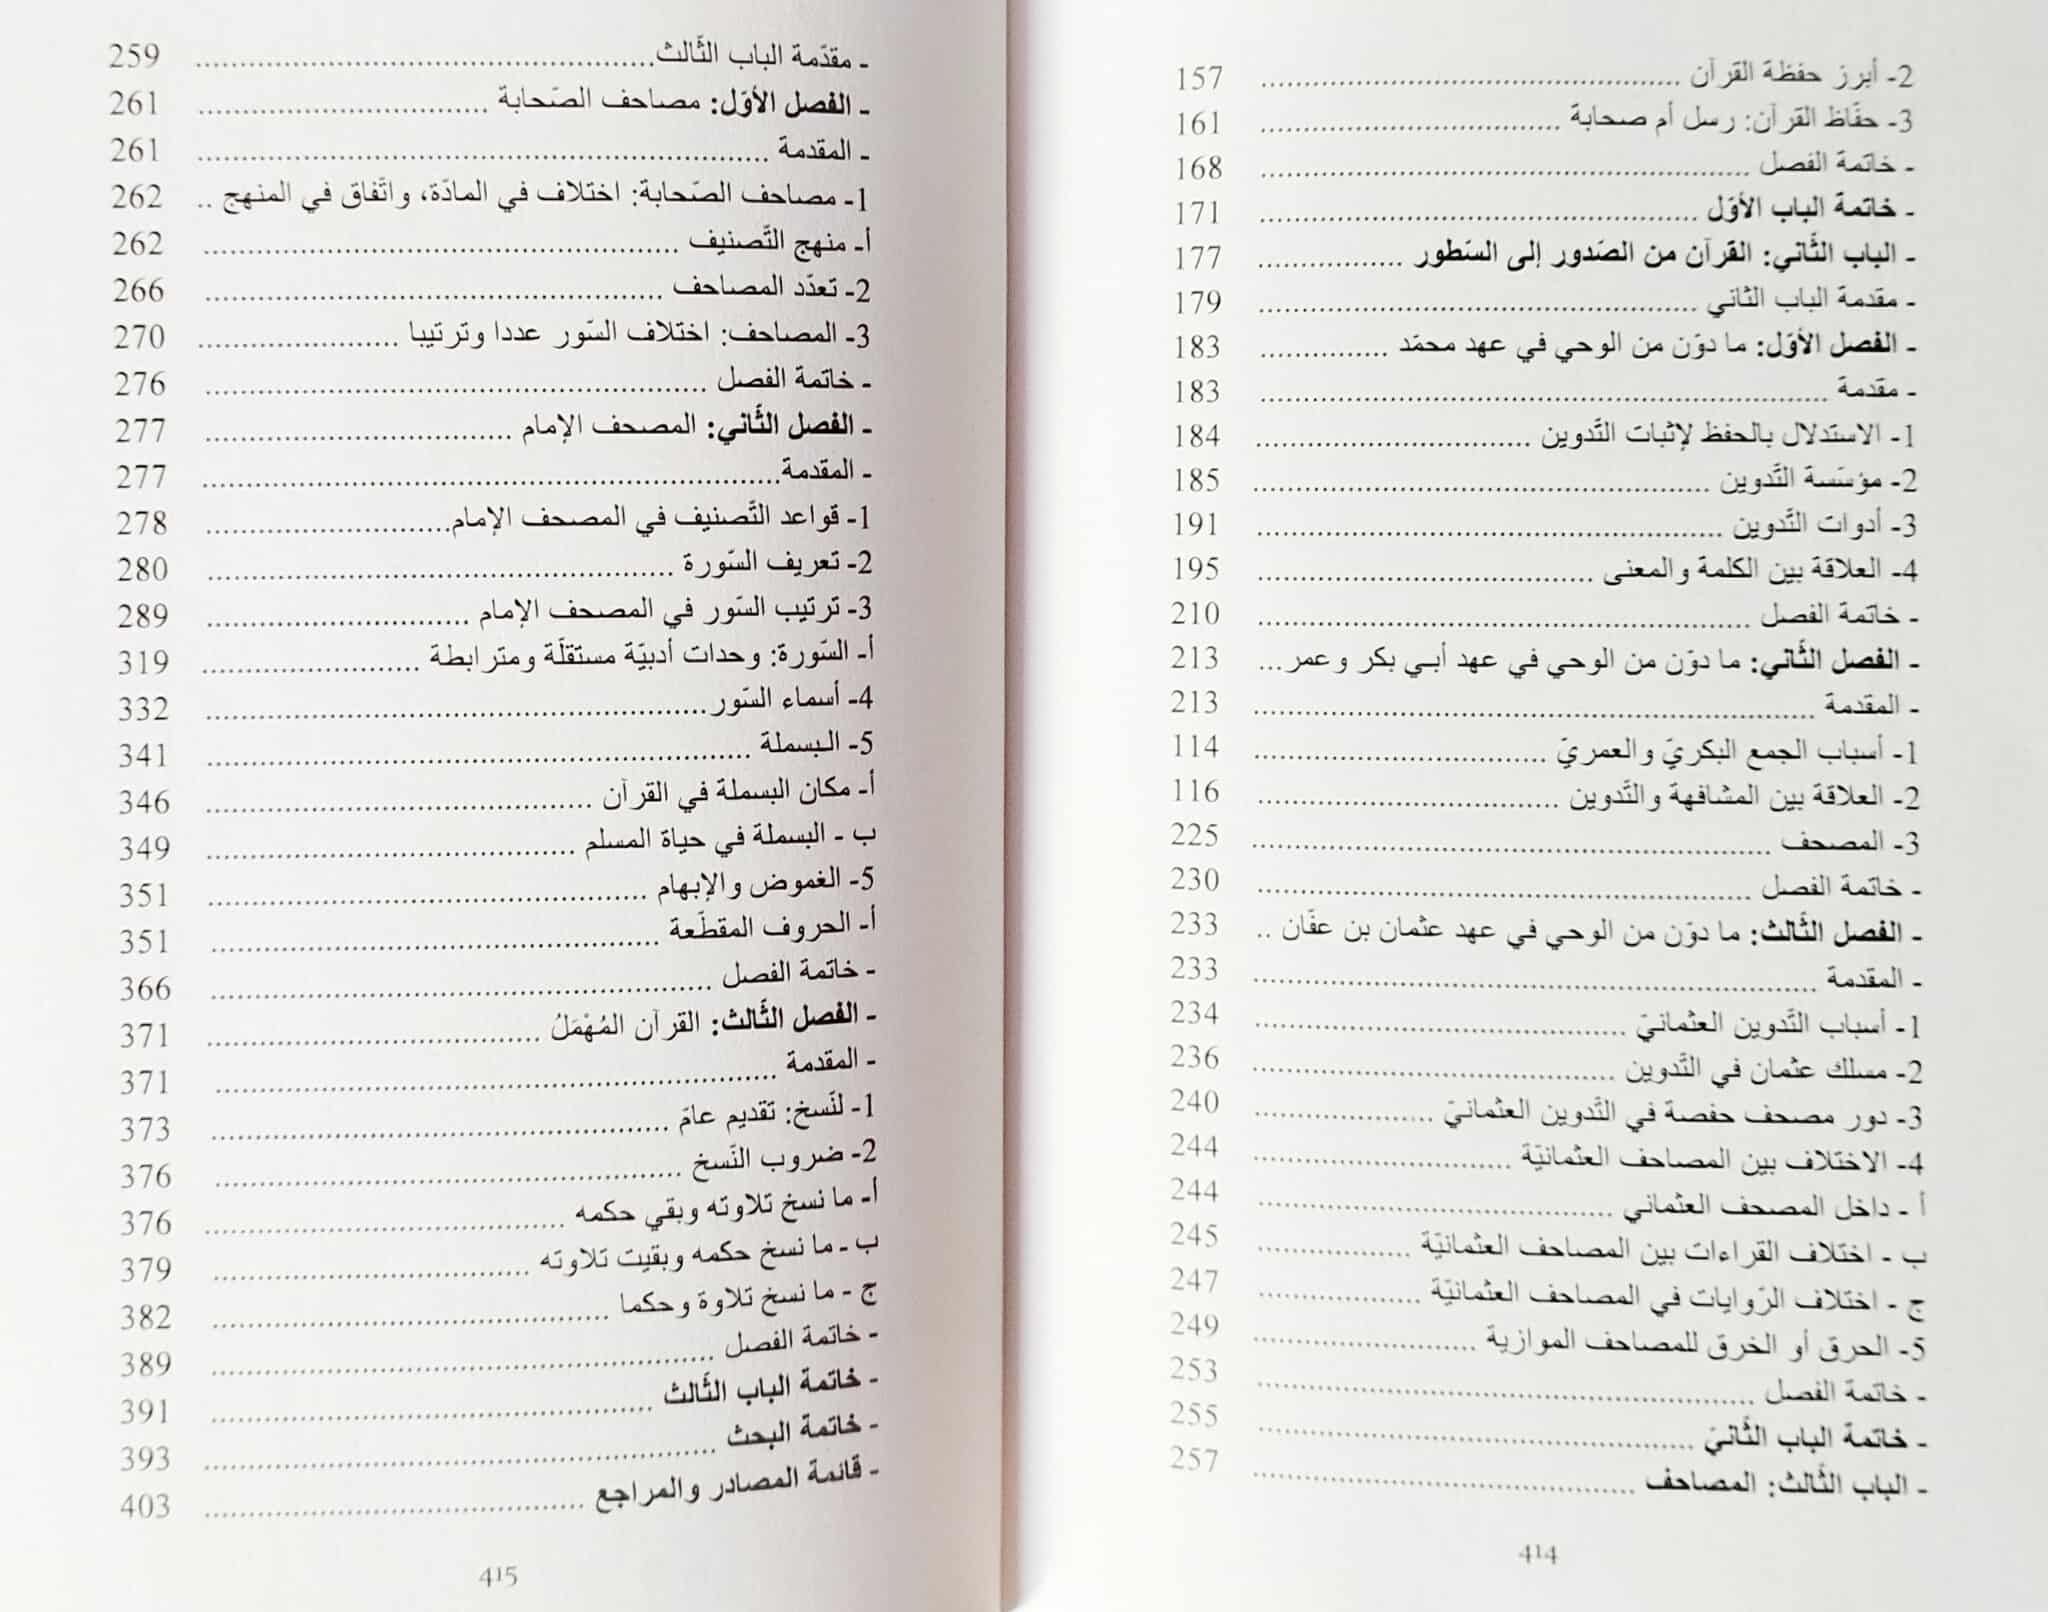 2- أبرز حفظة القرآن ........ 157
3- حفّاظ القرآن: رسل أم صحابة ........ 161
- خاتمة الفصل ........ 168
- خاتمة الباب الأوّل ........ 171
- الباب الثّاني: القرآن من الصّدور إلى السّطور ........ 177
- مقدمة الباب الثاني ........ 179
- الفصل الأوّل: ما دوّن من الوحي في عهد محمّد ........ 183
- مقدمة ........ 183
1- الاستدلال بالحفظ لإثبات التّدوين ........ 184
2- مؤسّسة التّدوين ........ 185
3- أدوات التّدوين ........ 191
4- العلاقة بين الكلمة والمعنى ........ 195
- خاتمة الفصل ........ 210
- الفصل الثّاني: ما دوّن من الوحي في عهد أبي بكر وعمر... 213
- المقدمة ........ 213
1- أسباب الجمع البكريّ والعمريّ ........ 114
2- العلاقة بين المشافهة والتّدوين ........ 116
3- المصحف ........ 225
- خاتمة الفصل ........ 230
- الفصل الثّالث: ما دوّن من الوحي في عهد عثمان بن عفّان .. 233
- المقدمة ........ 233
1- أسباب التّدوين العثمانيّ ........ 234
2- مسلك عثمان في التّدوين ........ 236
3- دور مصحف حفصة في التّدوين العثمانيّ ........ 240
4- الاختلاف بين المصاحف العثمانيّة ........ 244
أ - داخل المصحف العثماني ........ 244
ب - اختلاف القراءات بين المصاحف العثمانيّة ........ 245
ج - اختلاف الرّوايات في المصاحف العثمانيّة ........ 247
5- الحرق أو الخرق للمصاحف الموازية ........ 249
- خاتمة الفصل ........ 253
- خاتمة الباب الثّانيّ ........ 255
- الباب الثّالث: المصاحف ........ 257
414
- مقدّمة الباب الثّالث ........ 259
- الفصل الأوّل: مصاحف الصّحابة ........ 261
- المقدمة ........ 261
1- مصاحف الصّحابة: اختلاف في المادّة، واتّفاق في المنهج .. 262
أ- منهج التّصنيف ........ 262
2- تعدّد المصاحف ........ 266
3- المصاحف: اختلاف السّور عددا وترتيبا ........ 270
- خاتمة الفصل ........ 276
- الفصل الثّاني: المصحف الإمام ........ 277
- المقدمة ........ 277
1- قواعد التّصنيف في المصحف الإمام ........ 278
2- تعريف السّورة ........ 280
3- ترتيب السّور في المصحف الإمام ........ 289
أ- السّورة: وحدات أدبيّة مستقلّة ومترابطة ........ 319
4- أسماء السّور ........ 332
5- البسملة ........ 341
أ- مكان البسملة في القرآن ........ 346
ب - البسملة في حياة المسلم ........ 349
5- الغموض والإبهام ........ 351
أ- الحروف المقطّعة ........ 351
- خاتمة الفصل ........ 366
- الفصل الثّالث: القرآن المُهْمَلُ ........ 371
- المقدمة ........ 371
1- لنّسخ: تقديم عامّ ........ 373
2- ضروب النّسخ ........ 376
أ- ما نسخ تلاوته وبقي حكمه ........ 376
ب - ما نسخ حكمه وبقيت تلاوته ........ 379
ج - ما نسخ تلاوة وحكما ........ 382
- خاتمة الفصل ........ 389
- خاتمة الباب الثّالث ........ 391
- خاتمة البحث ........ 393
- قائمة المصادر والمراجع ........ 403
415